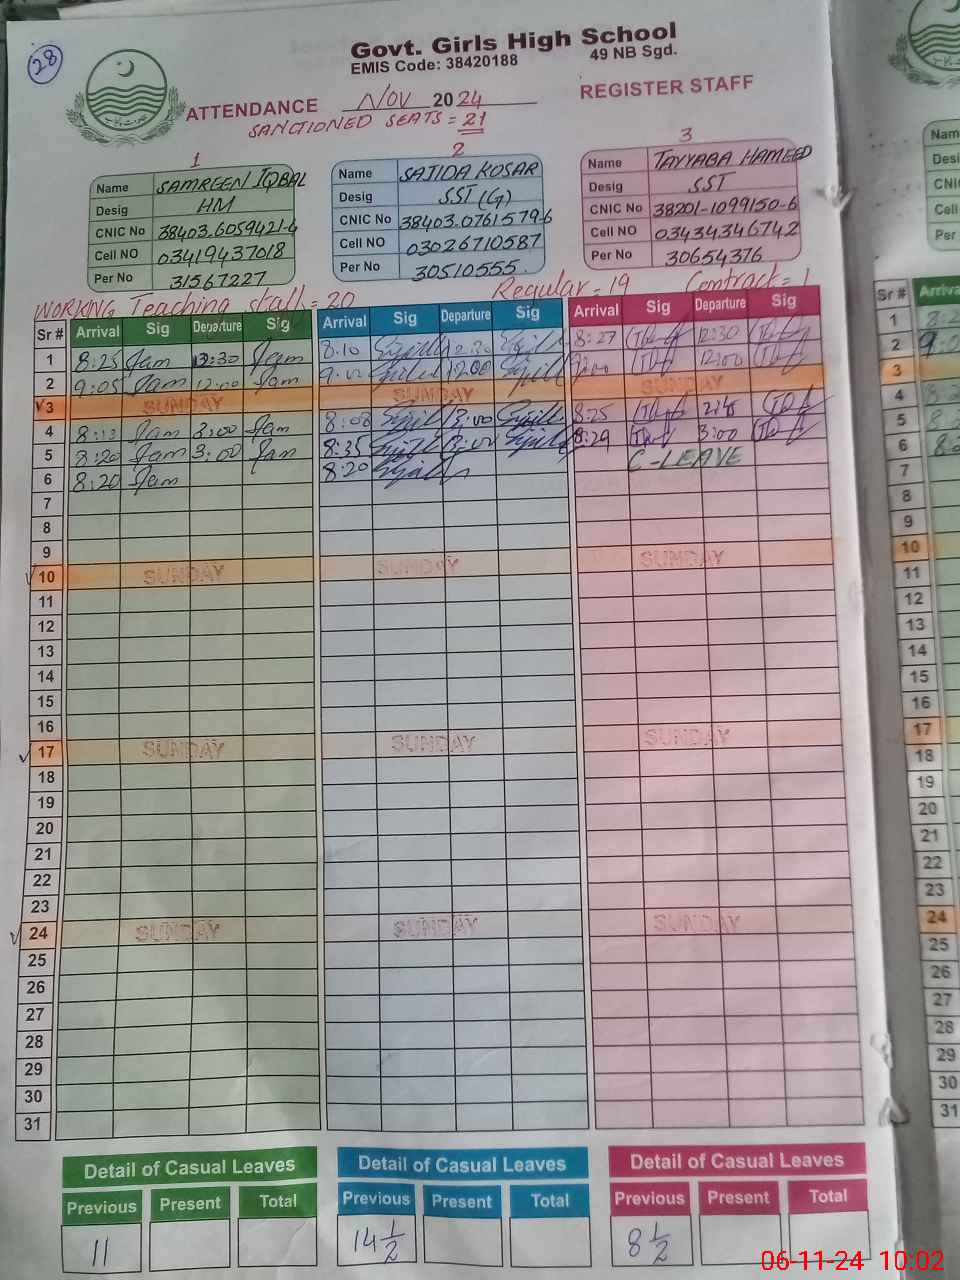 28
Govt. Girls High School
EMIS Code: 38420188 49 NB Sgd.
ATTENDANCE NOV 2024 REGISTER STAFF
SANCTIONED SEATS = 21
1 2 3
Name SAMREEN IQBAL
Desig HM
CNIC No 38403-6059421-6
Cell NO 03419437018
Per No 31567227
Name SAJIDA KOSAR
Desig SST (G)
CNIC No 38403-0761579-6
Cell NO 03026710587
Per No 30510555
Name TAYYABA HAMEED
Desig SST
CNIC No 38201-1099150-6
Cell NO 03434346742
Per No 30654376
WORKNG Teaching staff = 20 Regular = 19 Contract = 1
Sr # Arrival Sig Departure Sig Arrival Sig Departure Sig Arrival Sig Departure Sig
1 8:25 12:30 8:10 12:30 8:27 12:30
2 9:05 12:00 12:00 12:00
3 SUNDAY SUNDAY SUNDAY
4 3:00 8:08 3:00 8:25
5 8:20 3:00 8:35 8:29 3:00
6 8:20 8:20 C-LEAVE
7
8
9
10 SUNDAY SUNDAY SUNDAY
11
12
13
14
15
16
17 SUNDAY SUNDAY SUNDAY
18
19
20
21
22
23
24 SUNDAY SUNDAY SUNDAY
25
26
27
28
29
30
31
Detail of Casual Leaves Detail of Casual Leaves Detail of Casual Leaves
Previous Present Total Previous Present Total Previous Present Total
11 14 1/2 8 1/2
Sr # Arriva
1
2
3
4
5
6
7
8
9
10
11
12
13
14
15
16
17
18
19
20
21
22
23
24
25
26
27
28
29
30
31
06-11-24 10:02